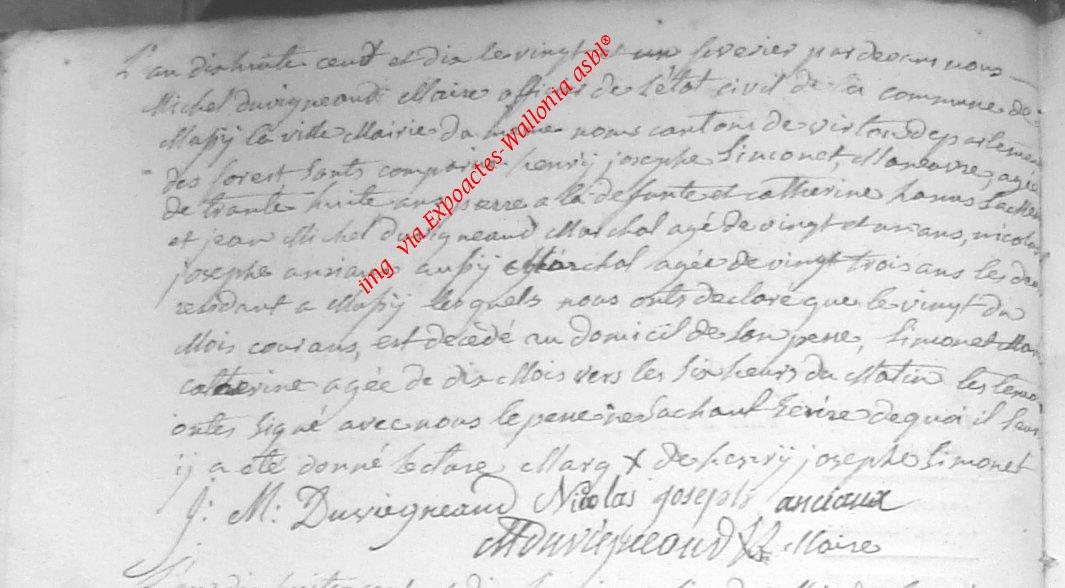 L'an dix huite cent et dix le vingt et un fevrier pardevant nous
Michel duvigneaud Maire officier de l'état civil de la commune de
Mussÿ la ville Mairie du même nom canton de virton departement
des forest sonts comparus henrÿ josephe Simonet, Manœuvre, agée
de trante huite ans
et jean Michel duvigneaud Marchal agé de vingt et un ans, nicolas
josephe anciaux aussÿ Marchal agée de vingt trois ans les deux
residant a Mussÿ lesquels nous onts declaré que le vingt du
Mois courans, est decedé au domicil de son pere, Simonet
catherine agée de dix Mois vers les six heurs du Matin les temoin
ontes signé avec nous le pere ne sachant Ecrire de quoi il leur
ÿ a eté donné lecture Marq X de henrÿ josephe Simonet
J: M: Duvigneaud Nicolas joseph anciaux
Mduvigneaud Maire
img via Expoactes-Wallonia asbl®